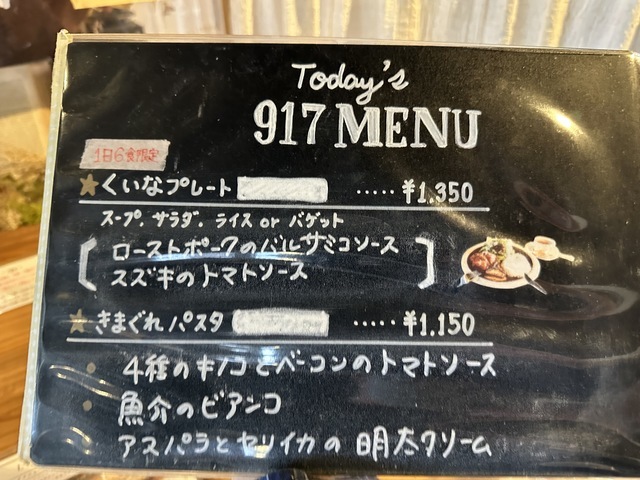 Today's
917 MENU
1日6食限定
★くいなプレート ‥‥‥ ¥1.350
スープ. サラダ. ライス or バゲット
ローストポークのバルサミコソース
スズキのトマトソース
★きまぐれパスタ ‥‥‥ ¥1.150
• 4種のキノコとベーコンのトマトソース
• 魚介のビアンコ
アスパラとセリイカの明太クリーム